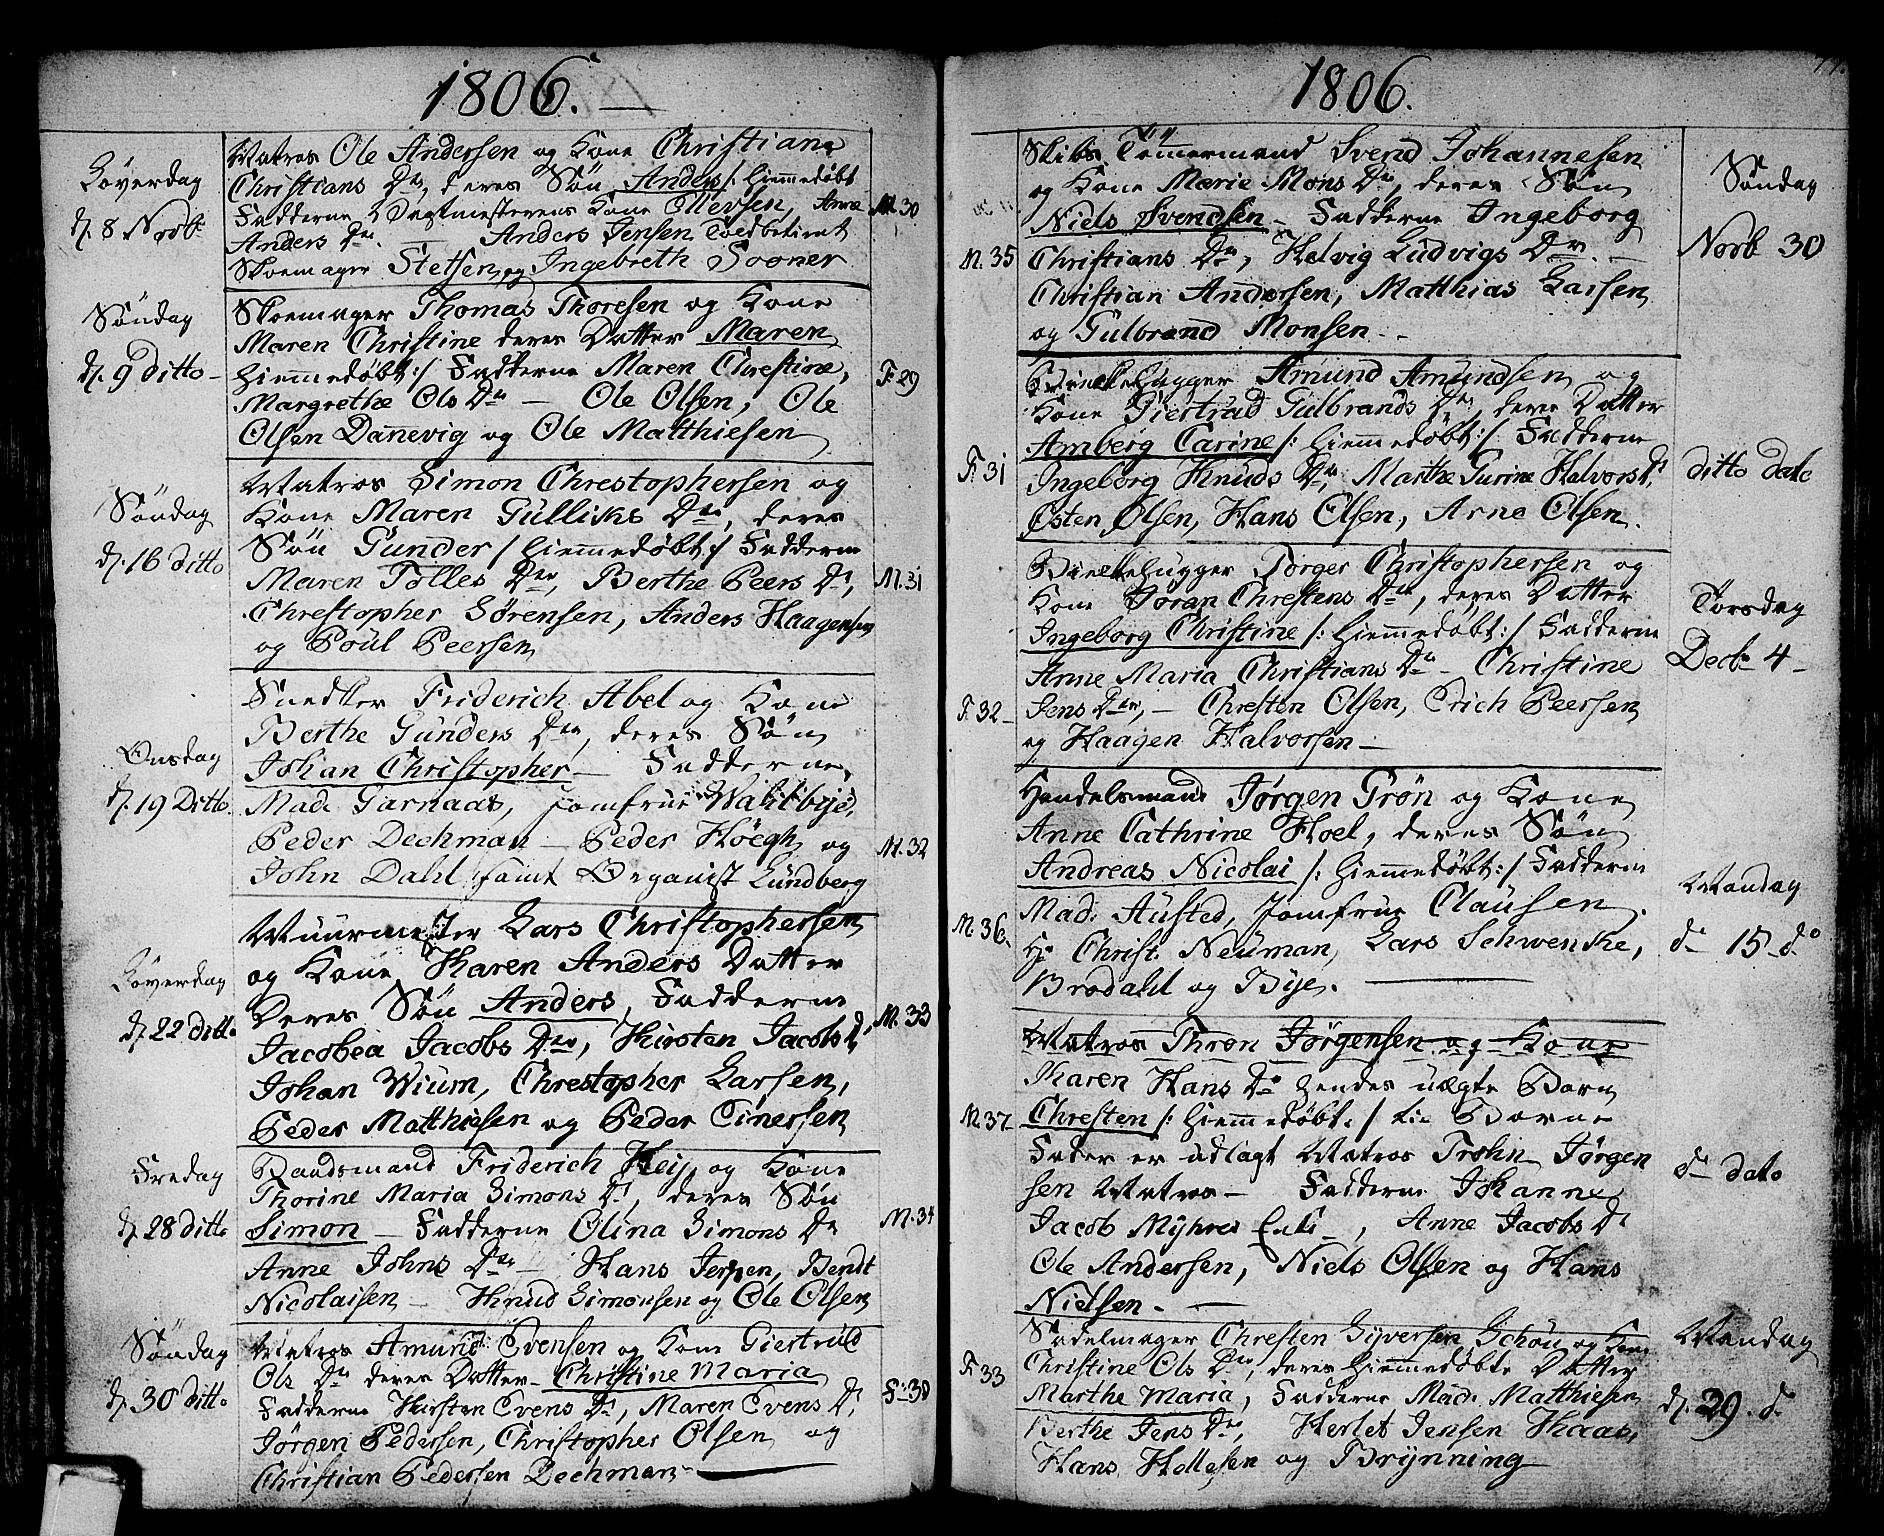 1806.
Löverdag
d. 8 Novb.
Matros Ole Andersen og Kone Christiane
Christians Dr, deres Søn Anders /: hiemmedøbt
Fadderne Vagtmesterens Kone Ollevsen, Anne
Anders Dr. — Anders Jensen Toldbetient
Skomager Stetsen og Ingebreth Sooner
M. 30
Söndag
d. 9 ditto
Skoemager Thomas Thoresen og Kone
Maren Christine deres Datter Maren
hiemmedøbt :/ Fadderne Maren Chrestine,
Margrethe Ols Dr — Ole Olsen, Ole
Olsen Danevig og Ole Matthiesen
F. 29
Söndag
d. 16 ditto
Matros Simon Chrestophersen og
Kone Maren Gulliks Dr, deres
Søn Gunder /: hiemmedøbt :/ Fadderne
Maren Tolles Dr, Berthe Peers Dr,
Chrestopher Sørensen, Anders Haagensen
og Poul Peersen
M. 31
Onsdag
d. 19 Ditto
Snedker Friderich Abel og Kone
Berthe Gunders Dr, deres Søn
Johan Christopher — Fadderne,
Mad. Garnaas, Jomfrue
Peder Dechman — Peder Höegh og
John Dahl samt Organist Lundberg
M. 32
Löverdag
d. 22 ditto
Muurmester Lars Christophersen
og Kone Karen Anders Datter
Deres Søn Anders, Fadderne
Jacobea Jacobs Dr, Kirsten Jacobs D,
Johan Wium, Chrestopher Larsen,
Peder Matthiesen og Peder Einersen
M. 33
Fredag
d. 28 ditto
Baadsmand Friderich Heij og Kone
Thorine Maria Simons Dr, deres Søn
Simon — Fadderne Olina Simons Dr
Anne Johns Dr — Hans Jensen, Bendt
Nicolaisen — Knud Simonsen og Ole Olsen
M. 34
Söndag
d. 30 ditto
Matros Amund Evensen og Kone Giertrud
Ols Dr deres Datter Christine Maria
Fadderne Kirsten Evens Dr, Maren Evens Dr
Jørgen Pedersen, Christopher Olsen og
Christian Pedersen Dechman —
F. 30
1806.
77.
Skibs Tömmermand Svend Johannesen
og Kone Marie Mons Dr, deres Søn
Niels Svendsen — Fadderne Ingeborg
Christians Dr, Helvig Ludvigs Dr. —
Christian Andersen, Matthias Larsen
og Gulbrand Monsen —
M. 35
Söndag
Novb 30
Amund Amundsen og
Kone Giertrud Gulbrands Dr, deres Datter
Amberg Carine /: hiemmedøbt :/ Fadderne
Ingeborg Knuds Dr, Marthe Gurine Halvors D,
Østen Olsen, Hans Elsen, Arne Olsen.
F. 31
ditto dato
Torger Christophersen og
Kone Joran Chrestens Dr, deres Datter
Ingeborg Christine /: hiemmedøbt :/ Fadderne
Anne Maria Christians Dr — Christine
Jens Dr, — Chresten Olsen, Erich Peersen
og Haagen Halvorsen —
F. 32
Torsdag
Decb 4
Handelsmand Jørgen Grön og Kone
Anne Cathrine Hoel, deres Søn
Andreas Nicolai /: hiemmedøbt :/ Fadderne
Mad. Austed, Jomfrue Clausen.
Hr Christ. Neuman, Lars Schwenke,
Brodahl og Bije.
M. 36
Mandag
d 15 do
Matros Thron Jörgensen og Kone
Karen Hans Dr hendes uægte Barn
Chresten /: hiemmedøbt :/ til Barne
Fader er udlagt Matros Trohn Jörgen
sen Matros — Fadderne Johanne
Jacob Myhres Enke, Anne Jacobs Dr
Ole Andersen, Niels Olsen og Hans
Nielsen. —
M. 37
do dato
Sadelmager Chresten Syversen Schöu og Kone
Christine Ols Dr, deres hiemmedøbte Datter
Marthe Maria, Fadderne Mad. Matthiesen
Berthe Jens Dr, Herlet Jensen Haas,
Hans Hellesen og Brynning
F. 33
Mandag
d. 29. do